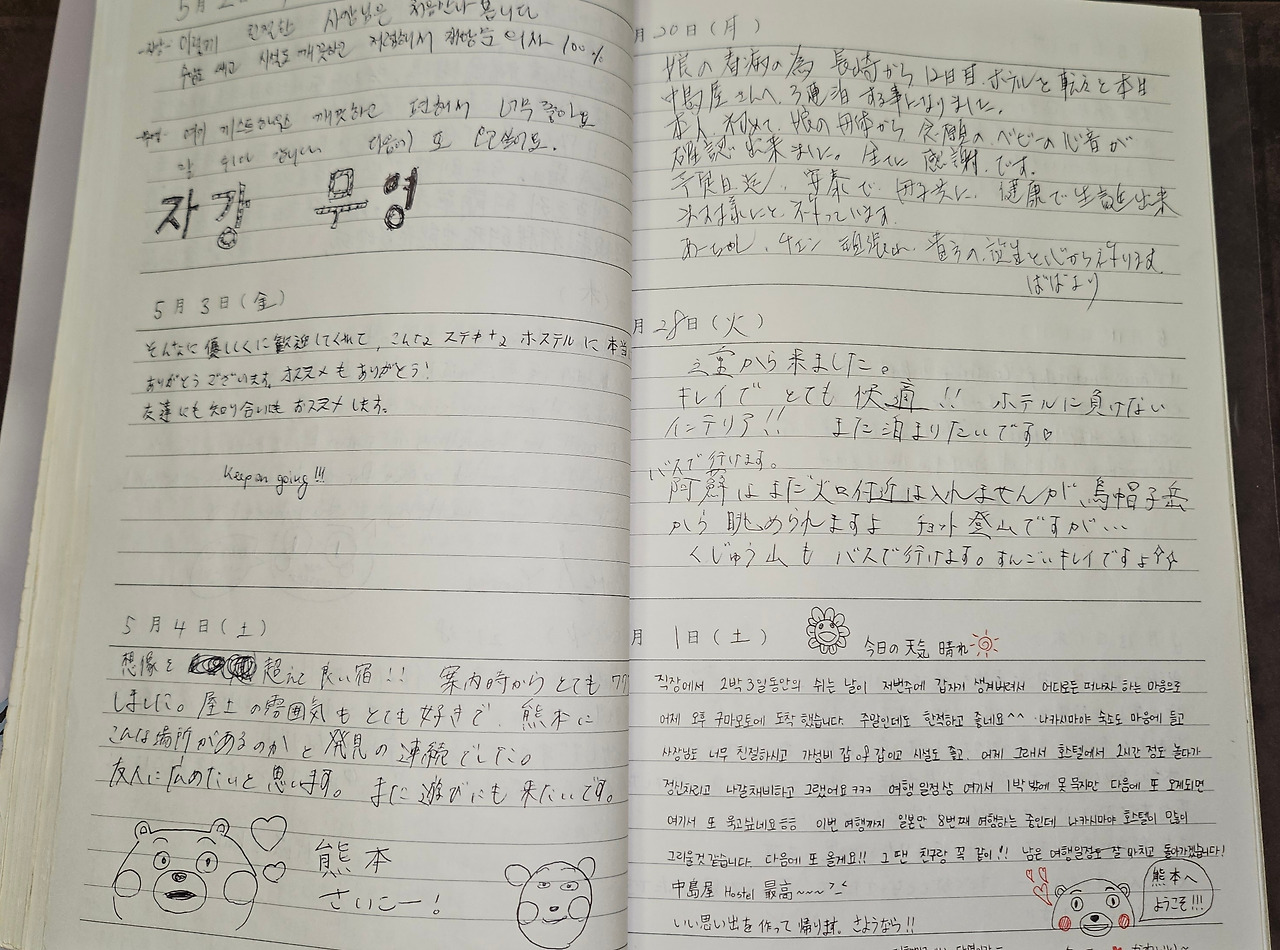 이렇게 친절한 사장님은 처음만나 봅니다
시설도 깨끗하고 저렴해서 재방문 의사 100%
여기 게스트하우스 깨끗하고 편해서 너무 좋아요
다음에 또 오고싶어요.
자강 무영
5月3日(金)
そんなに優しくに歓迎してくれて、こんなステキなホステルに本当
ありがとうございます。オススメもありがとう!
友達にも知り合いもおススメします。
Keep on going!!!
5月4日(土)
想像を超えて良い宿!! 案内時からとても
しました。屋上の雰囲気もとても好きで、熊本に
こんな場所があるのかと発見の連続でした。
友人に広めたいと思います。また遊びにも来たいです。
熊本
さいこー!
月20日(月)
娘の看病の為 長崎から12日目、ホテルを転々と本日
中島屋さんへ、3連泊する事になりました。
本人、初めて、娘の母体から念願のベビーの心音が
確認出来ました。全てに感謝です。
予定日迄、安泰で、母子共に、健康で生誕出来
ます様にと、祈っています。
頑張れ、貴方の誕生を心から祈ります。
ばばより
月28日(火)
三重から来ました。
キレイでとても快適!! ホテルに負けない
インテリア!! また泊まりたいです♡
バスで行けます。
阿蘇はまだ火口付近は入れませんが、烏帽子岳
から眺められますよ チョット登山ですが…
くじゅう山もバスで行けます。すんごいキレイですよ
月1日(土)
今日の天気 晴れ
직장에서 2박 3일동안의 쉬는 날이 저번주에 갑자기 생겨버려서 어디로든 떠나자 하는 마음으로
어제 오후 구마모토에 도착 했습니다. 주말인데도 한적하고 좋네요^^ 나카시마야 숙소도 마음에 들고
사장님도 너무 친절하시고 가성비 갑 of 갑이고 시설도 좋고. 어제 그래서 호스텔에서 1시간 정도 놀다가
정신차리고 나갈채비하고 그랬어요 ㅋㅋㅋ 여행 일정상 여기서 1박 밖에 못 묵지만 다음에 또 오게되면
여기서 또 묵고싶네요 ㅎㅎ 이번 여행까지 일본만 8번째 여행하는 중인데 나카시마야 호스텔이 많이
그리울것 같습니다. 다음에 또 올게요!! 그 땐 친구랑 꼭 같이!! 남은 여행일정도 잘 마치고 돌아가겠습니다!
中島屋 Hostel 最高~~~ ^-^
いい思い出を作って帰ります。さようなら!!
熊本へ
ようこそ!!!